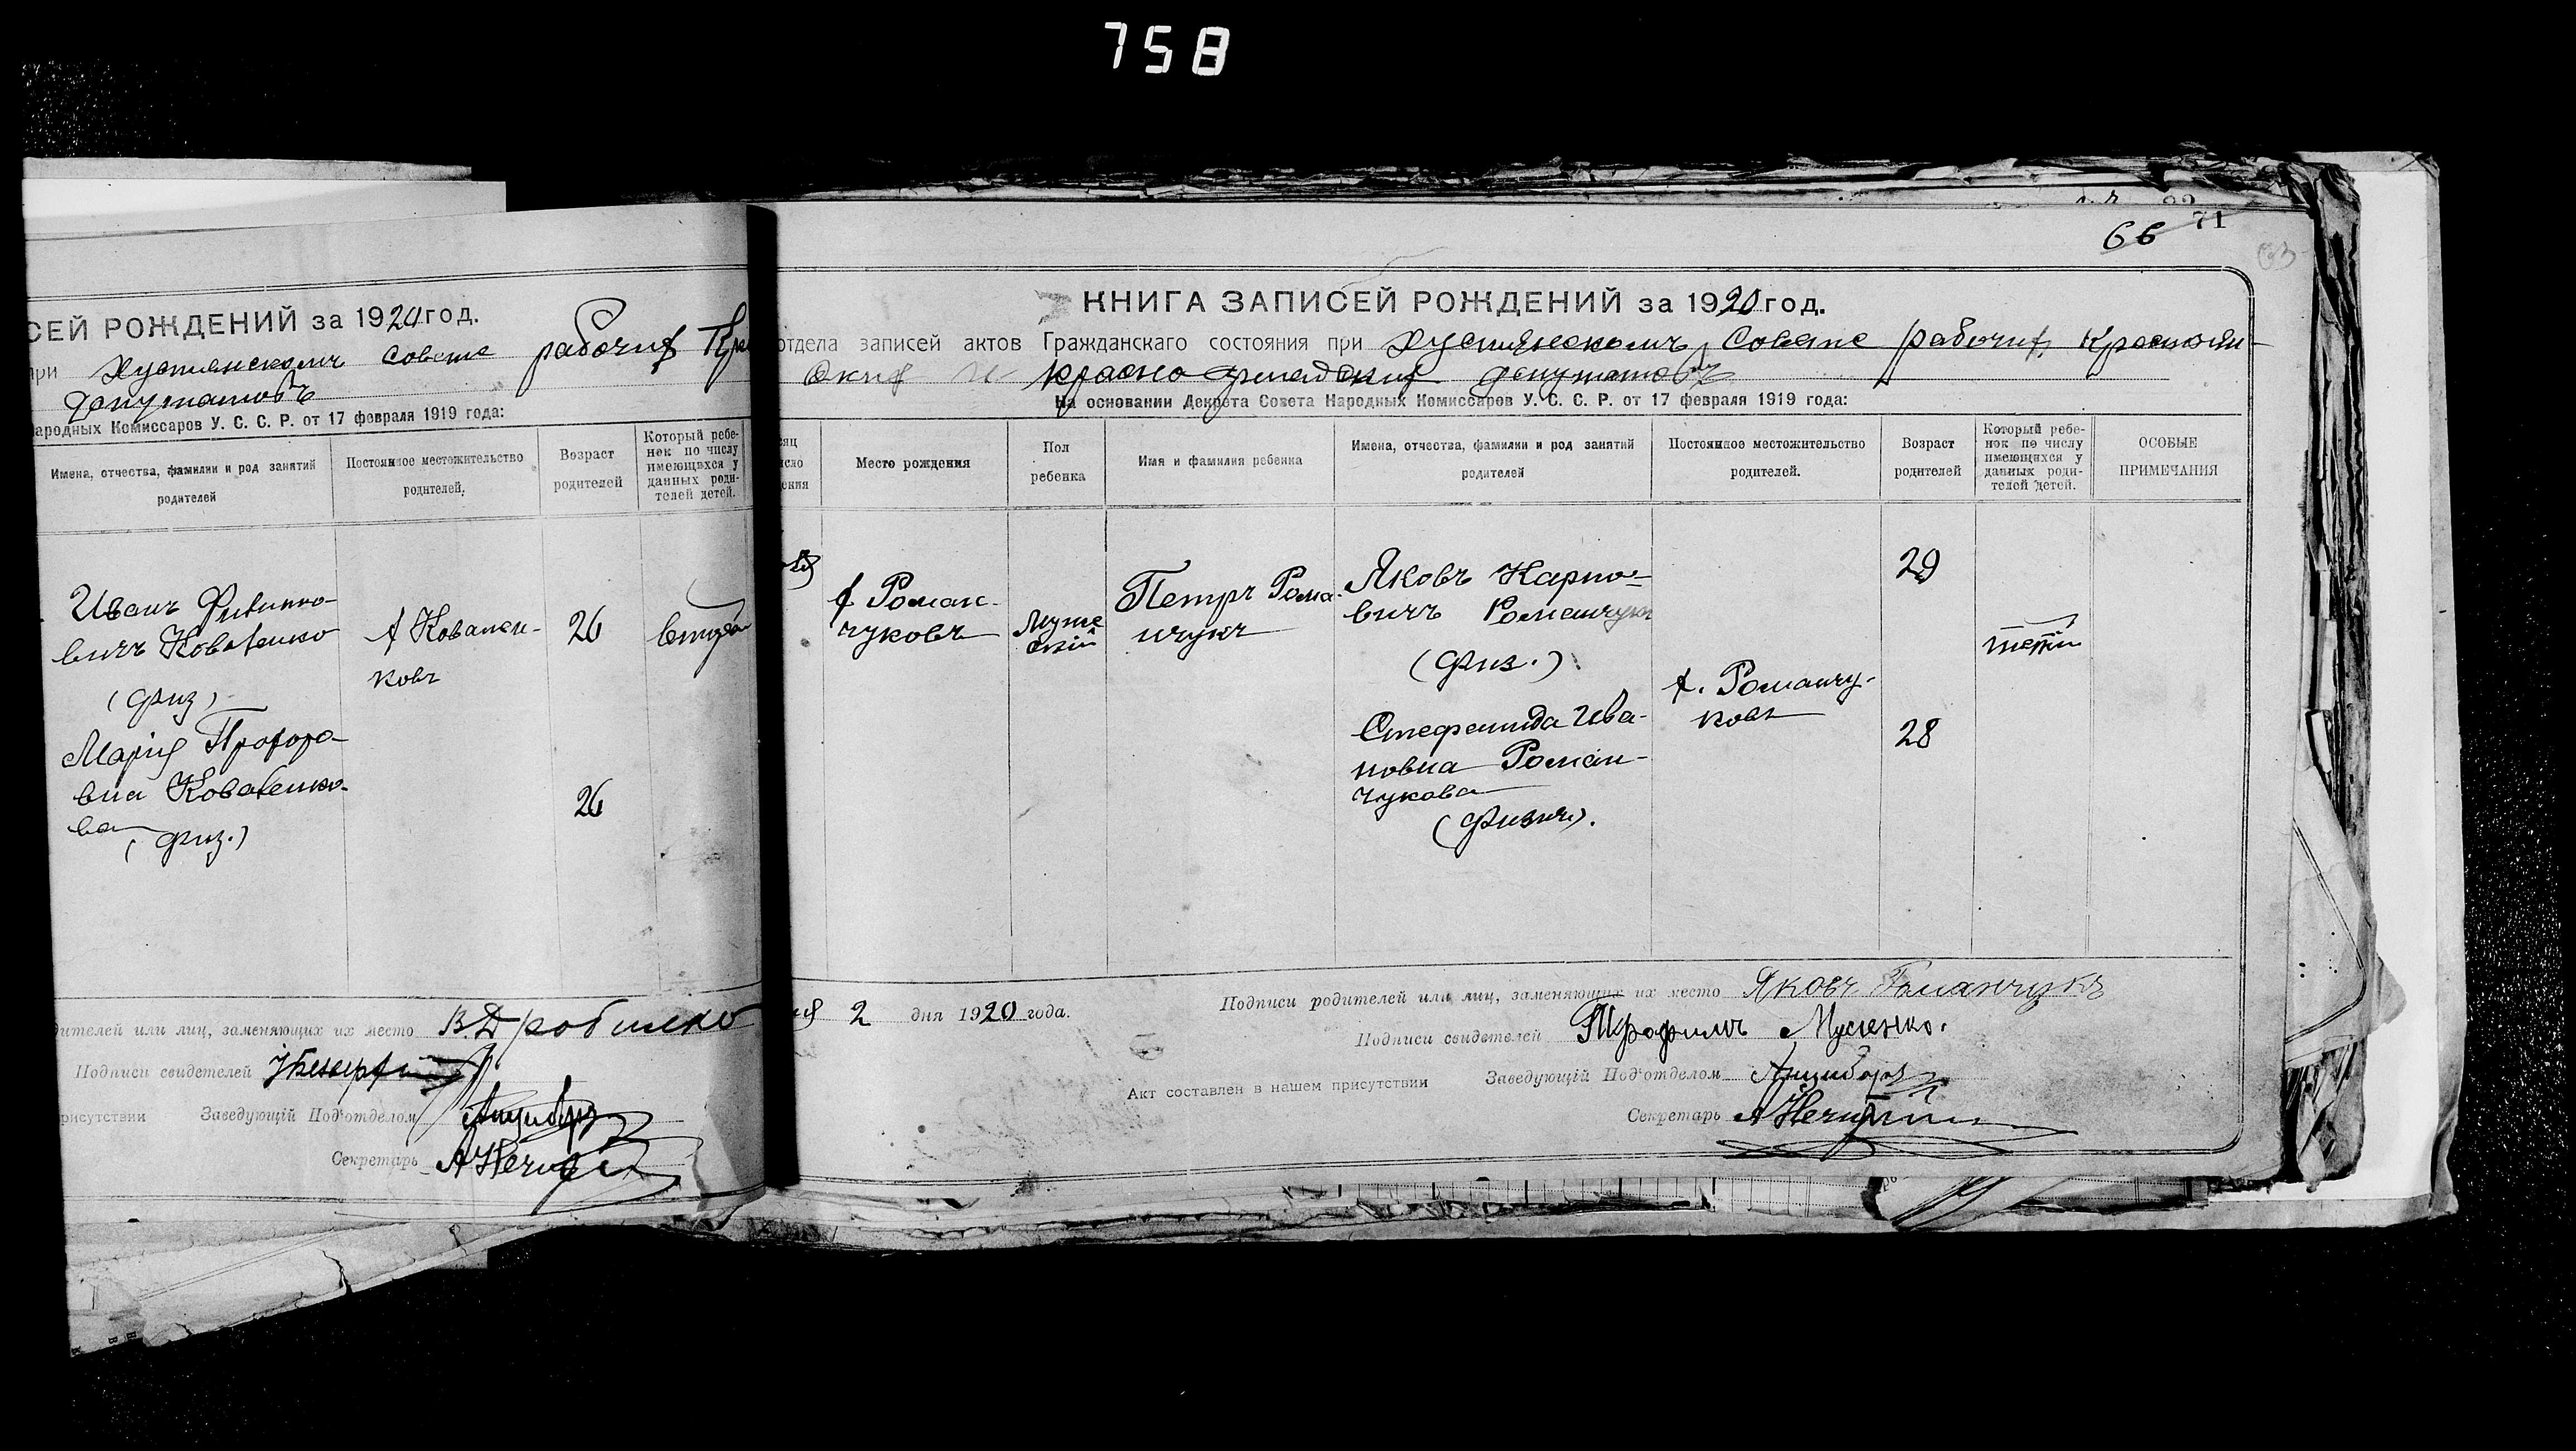 758
СЕЙ РОЖДЕНИЙ за 1920 год.
при Хустянскомъ Совете рабочих Кре
депутатовъ
ародных Комиссаров У. С. С. Р. от 17 февраля 1919 года:
Имена, отчества, фамилии и род занятий родителей
Постоянное местожительство родителей.
Возраст родителей
Который ребенок по числу имеющихся у данных родителей детей.
Иванъ
вичъ Коваленко
(физ)
Марія Прохоро-
вна Коваленко-
ва (физ.)
х Ковален-
ковъ
26
26
второй
дителей или лиц, заменяющих их место
Подписи свидетелей
присутствии Заведующій Под'отделом
Секретарь
66 71
КНИГА ЗАПИСЕЙ РОЖДЕНИЙ за 1920 год.
отдела записей актов Гражданскаго состояния при Хустянскомъ Совете рабочих, Крестьян-
ских и красно-армейских депутатовъ
На основании Декрета Совета Народных Комиссаров У. С. С. Р. от 17 февраля 1919 года:
Место рождения
Пол ребенка
Имя и фамилия ребенка
Имена, отчества, фамилии и род занятий родителей
Постоянное местожительство родителей.
Возраст родителей
Который ребенок по числу имеющихся у данных родителей детей.
ОСОБЫЕ ПРИМЕЧАНИЯ
х Роман-
чуковъ
Муже
скій
Петръ Рома-
нчукъ
Яковъ Карпо-
вичъ Романчукъ
(физ.)
Стефанида Ива-
новна Роман-
чукова
(физич).
х. Романчу-
ковъ
29
28
третій
2 дня 1920 года.
Подписи родителей или лиц, заменяющих их место Яковъ Романчукъ
Подписи свидетелей Трофимъ Мусіенко.
Акт составлен в нашем присутствии Заведующій Под'отделом
Секретарь